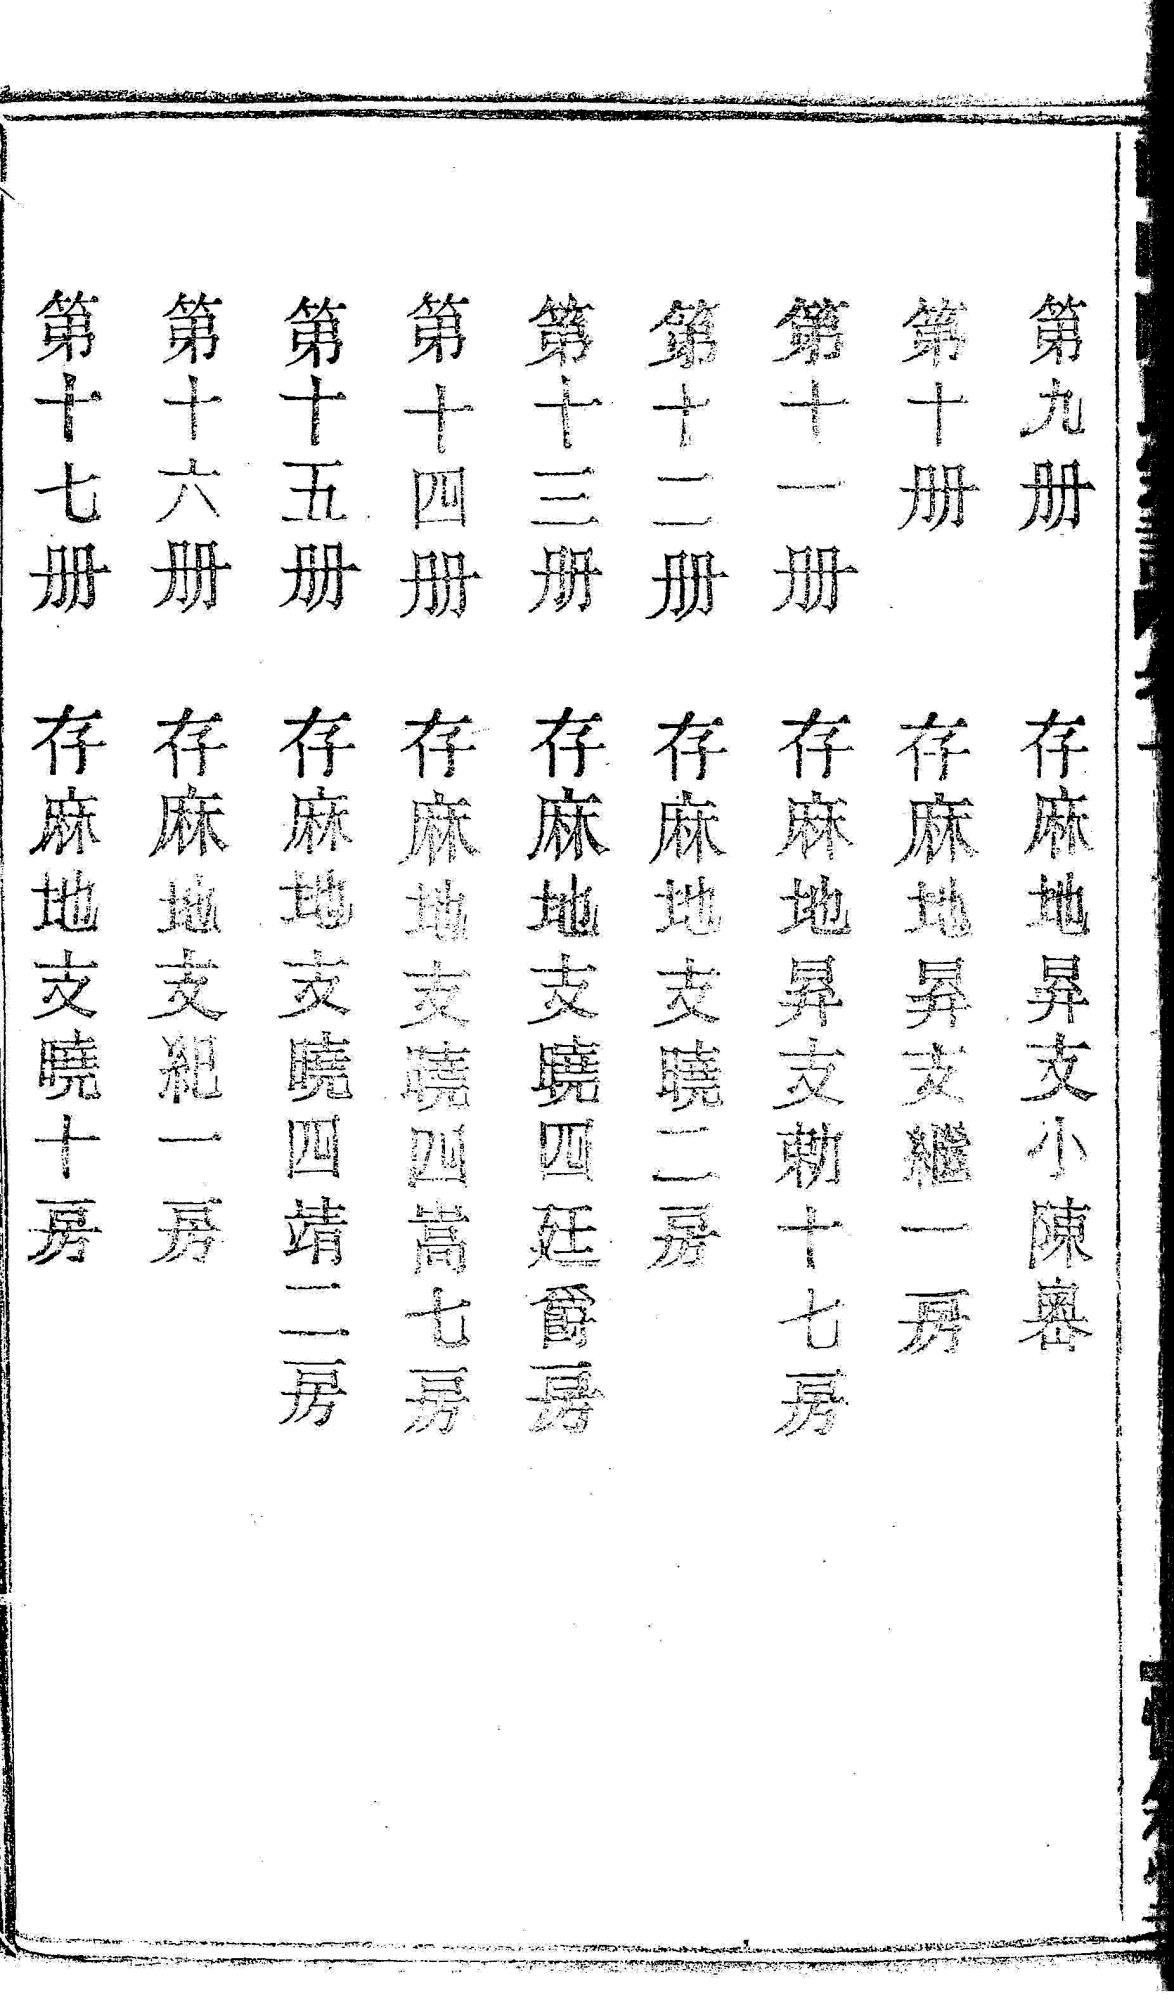 第九册　存麻地昇支小陳嶴
第十册　存麻地昇支繼一房
第十一册　存麻地昇支勑十七房
第十二册　存麻地支曉二房
第十三册　存麻地支曉四廷爵房
第十四册　存麻地支曉四嵩七房
第十五册　存麻地支曉四靖二房
第十六册　存麻地支紀一房
第十七册　存麻地支曉十房